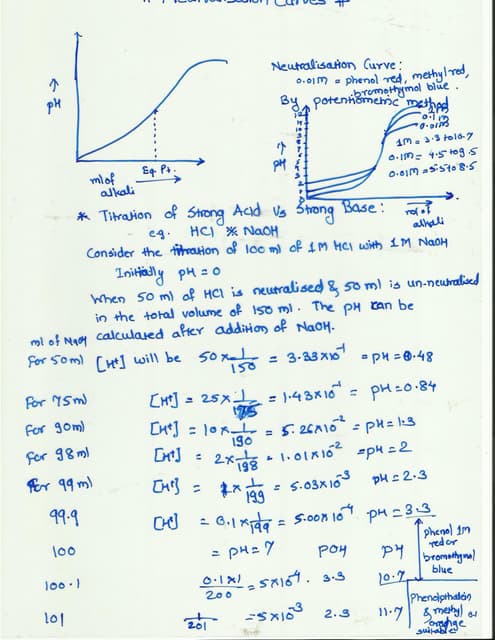 Neutralisation Curves #
Neutralisation Curve:
0.01M = phenol red, methyl red,
bromothymol blue.
By potentiometric method
↑
pH
Eq. Pt.
ml of
alkali
1M
0.1M
0.01M
1M = 3.3 to 10.7
0.1M = 4.5 to 9.5
0.01M = 5.5 to 8.5
↑
pH
ml of
alkali
* Titration of Strong Acid Vs Strong Base:
eg. HCl * NaOH
Consider the titration of 100 ml of 1M HCl with 1M NaOH
Initially pH = 0
When 50 ml of HCl is neutralised & 50 ml is un-neutralised
in the total volume of 150 ml. The pH can be
calculated after addition of NaOH.
ml of NaOH
For 50ml [H⁺] will be 50 x 1/150 = 3.33x10⁻¹ = pH = 0.48
For 75ml [H⁺] = 25 x 1/175 = 1.43x10⁻¹ = pH = 0.84
for 90ml [H⁺] = 10 x 1/190 = 5.26x10⁻² = pH = 1.3
for 98ml [H⁺] = 2 x 1/198 = 1.01x10⁻² = pH = 2
for 99ml [H⁺] = 1 x 1/199 = 5.03x10⁻³ pH = 2.3
99.9 [H⁺] = 0.1 x 1/199 = 5.00x10⁻⁴ pH = 3.3
100 = pH = 7 POH PH
100.1 0.1x1/200 = 5x10⁻⁴. 3.3 10.7
101 1/201 = 5x10⁻³ 2.3 11.7
phenol 1M
red or
bromothymol
blue
Phenolpthalein
& methyl
orange
suitable